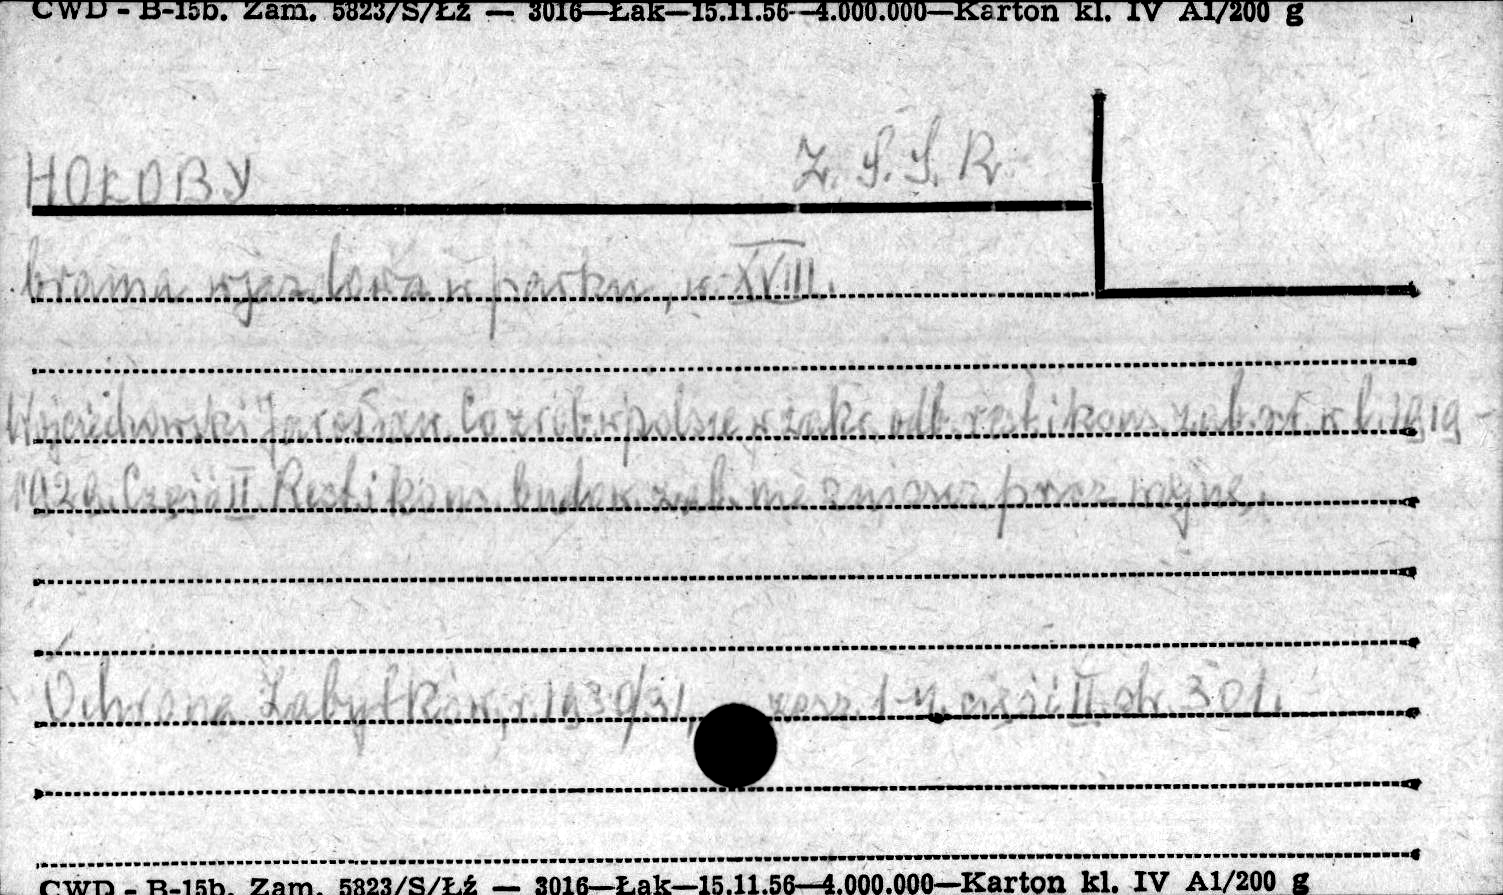 CWD - B-15b. Zam. 5823/S/Łź — 3016—Łak—15.11.56—4.000.000—Karton kl. IV A1/200 g
HOŁOBY Z. S. S. R.
brama wjazdowa w parku, w. XVIII.
Wojciechowski Jarosław. Co zrob. w polsce w zakr. odb. rest. i kons. zab. w l. 1919 -
1929. Część II. Rest. i kons. budow. zab. nie zniszcz. przez wojnę.
Ochrona Zabytków, r. 1930/31, zesz. 1-4. część II. str. 301.
CWD - B-15b. Zam. 5823/S/Łź — 3016—Łak—15.11.56—4.000.000—Karton kl. IV A1/200 g